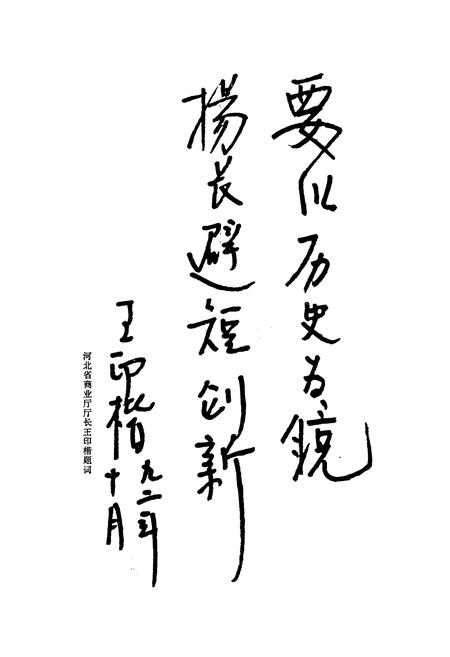 要以历史为镜
揚长避短创新
王印楷
九二年
十月
河北省商业厅厅长王印楷题词